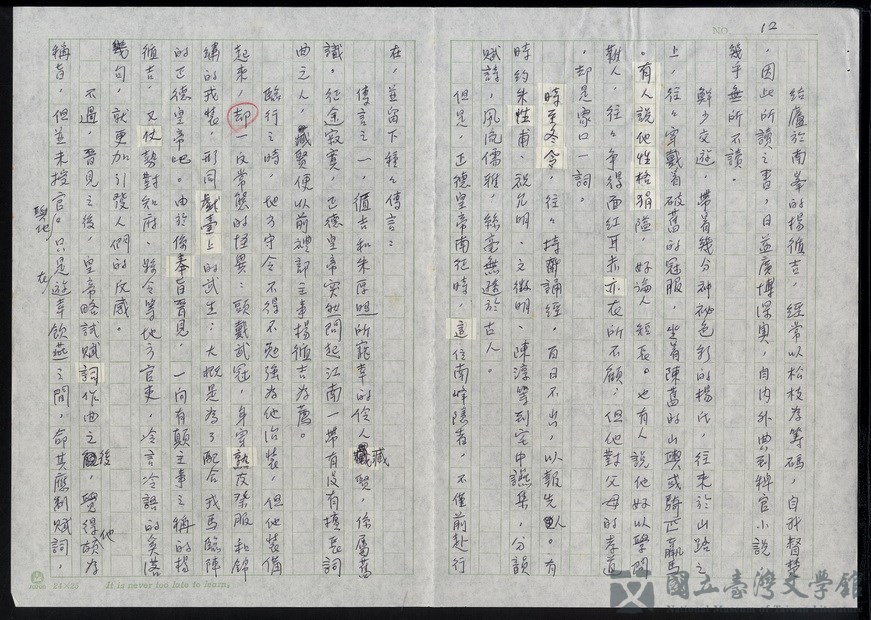 NO. 12
結廬於南峯的楊循吉，經常以松枝為籌碼，自我督
，因此所讀之書，日益廣博深奧，自內外典到稗官小說，
幾乎無所不讀。
鮮少交遊，帶着幾分神祕色彩的楊氏，往來於山路之
上，往往穿戴着破舊的冠服，坐着陳舊的山輿或騎匹羸馬
。有人說他性格狷隘，好論人短長。也有人說他好以學問
難人，往往爭得面紅耳赤亦在所不顧；但他對父母的孝道
，却是衆口一詞。
時至冬令，往往持齋誦經，百日不出，以報先人。有
時約朱性甫、祝允明、文徵明、陳淳等到宅中讌集，分韻
賦詩，風流儒雅，絲毫無遜於古人。
但是，正德皇帝南征時，這位南峰隱者，不僅前赴行
在，並留下種々傳言：
傳言之一，循吉和朱厚照所寵幸的伶人臧賢，係屬舊
識。征途寂寞，正德皇帝突然問起江南一帶有沒有擅長詞
曲之人，臧賢便以前禮部主事楊循吉為薦。
臨行之時，地方守令不得不勉強為他治裝，但他裝備
起來，却一反常態的怪異：頭戴武冠，身穿熟皮祭服和錦
繡的戎裝，形同戲臺上的武生；大概是為了配合戎馬臨陣
的正德皇帝吧。由於係奉旨晉見，一向有顛主事之稱的楊
循吉，又仗勢對知府、縣令等地方官吏，冷言冷語的奚落
幾句，就更加引發人們的反感。
不過，晉見之後，皇帝略試賦詞作曲之後，覺得頗為
稱旨，但並未授官。只是他在遊幸飲燕之間，命其應制賦詞，
24×25 It is never too late to learn.
國立臺灣文學館